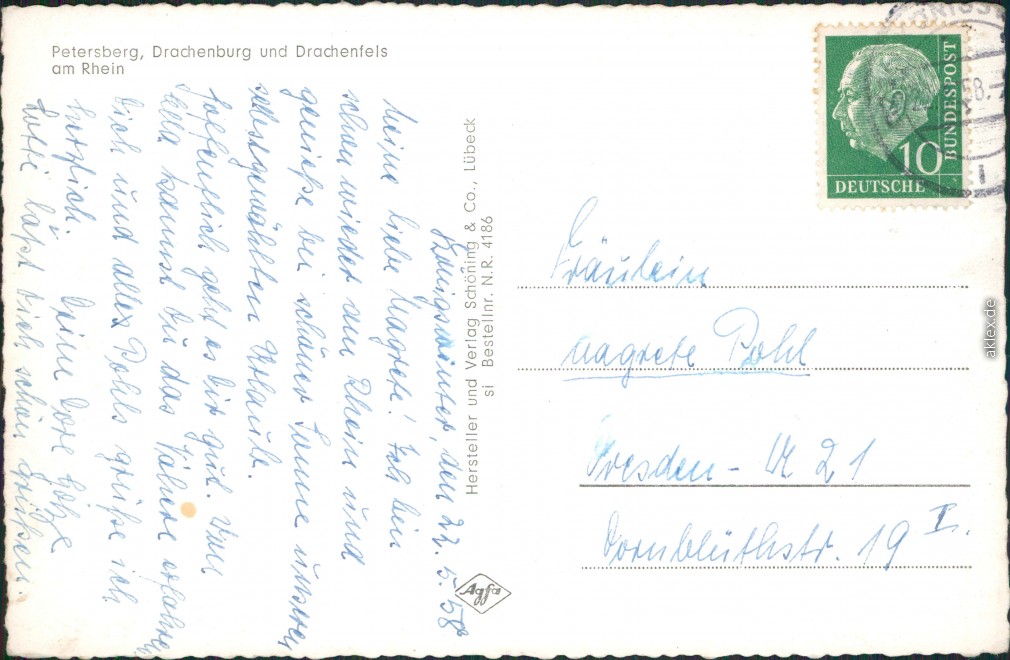 Petersberg, Drachenburg und Drachenfels
am Rhein
Königswinter, den 22.5.58
Meine liebe Magrete! Ich bin
schon wieder am Rhein und
genieße bei schöner Sonne unseren
selbstgewählten Urlaub.
Hoffentlich geht es Dir gut. Von
Ella kannst Du das Nähere erfahren
Dich und alles Pohls grüße ich
herzlich. Deine Dore
Lotti läßt Dich schön grüßen.
Hersteller und Verlag Schöning & Co., Lübeck
si Bestellnr. N.R. 4186
Agfa
10
DEUTSCHE
BUNDESPOST
58.
Fräulein
Magrete Pohl
Dresden - A 21
Dornblüthstr. 19 I.
akleX.de